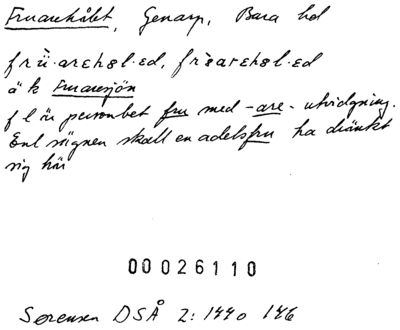 Fruarehålet, Genarp, Bara hd
frù·arehøl·ed, frùarehøl·ed
äk Fruaresjön
fl är personbet fru med -are- utvidgning.
Enl sägnen skall en adelsfru ha dränkt
sig här
00026110
Sørensen DSÅ 2: 1440 146